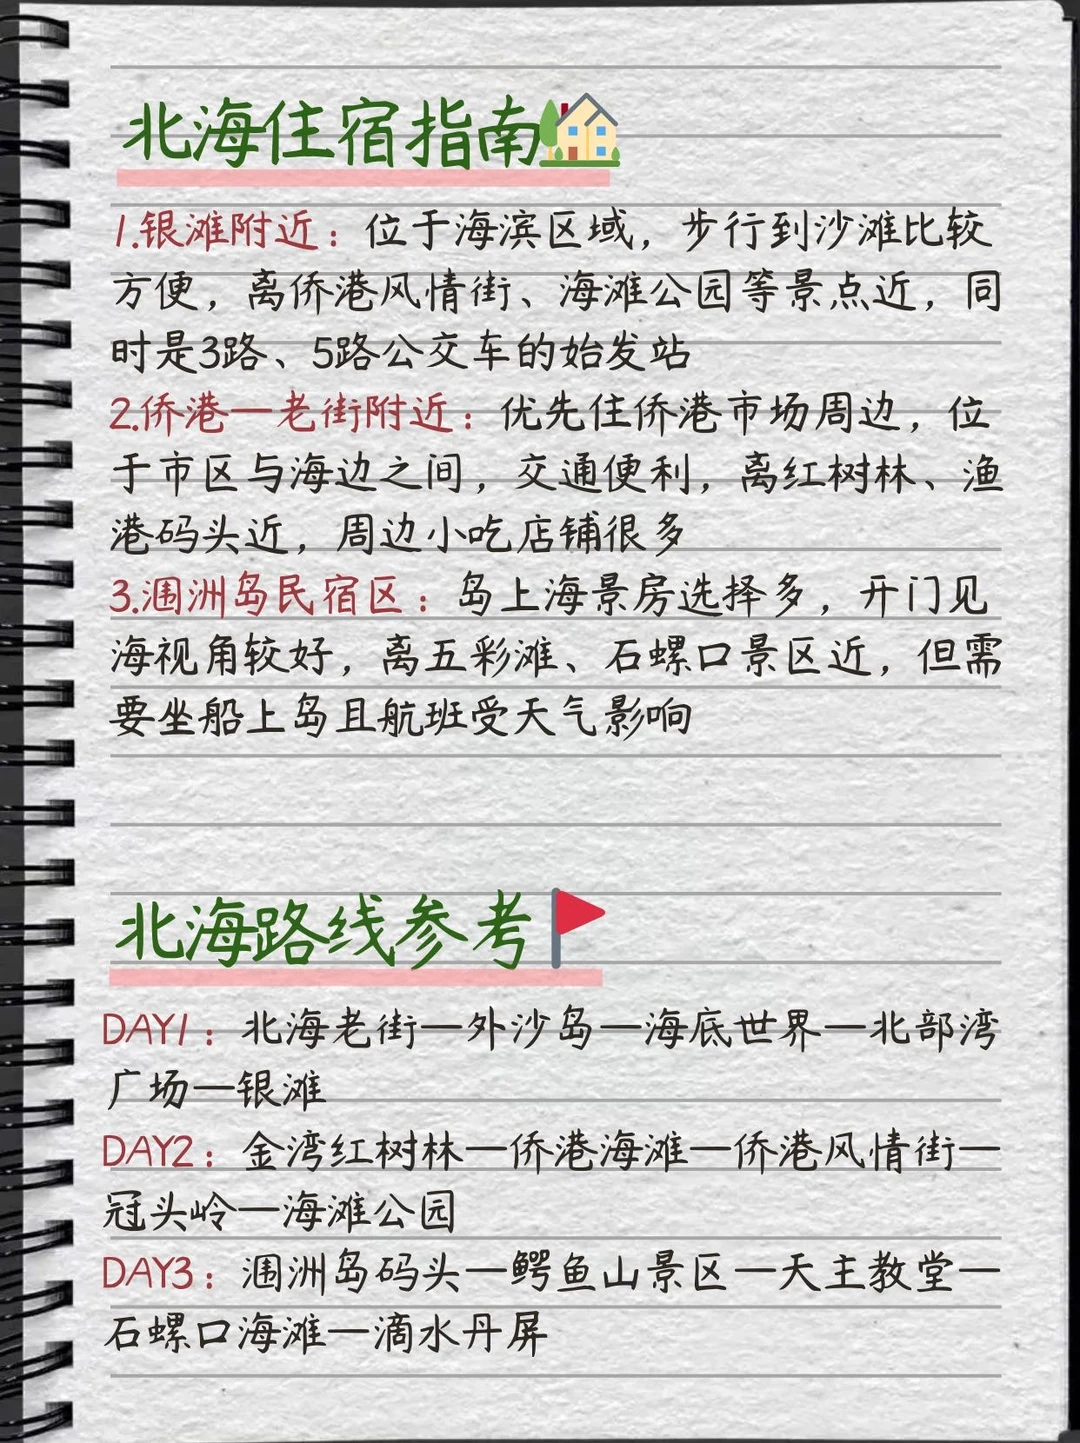 北海住宿指南
1.银滩附近：位于海滨区域，步行到沙滩比较
方便，离侨港风情街、海滩公园等景点近，同
时是3路、5路公交车的始发站
2.侨港—老街附近：优先住侨港市场周边，位
于市区与海边之间，交通便利，离红树林、渔
港码头近，周边小吃店铺很多
3.涠洲岛民宿区：岛上海景房选择多，开门见
海视角较好，离五彩滩、石螺口景区近，但需
要坐船上岛且航班受天气影响
北海路线参考
DAY1：北海老街—外沙岛—海底世界—北部湾
广场—银滩
DAY2：金湾红树林—侨港海滩—侨港风情街—
冠头岭—海滩公园
DAY3：涠洲岛码头—鳄鱼山景区—天主教堂—
石螺口海滩—滴水丹屏